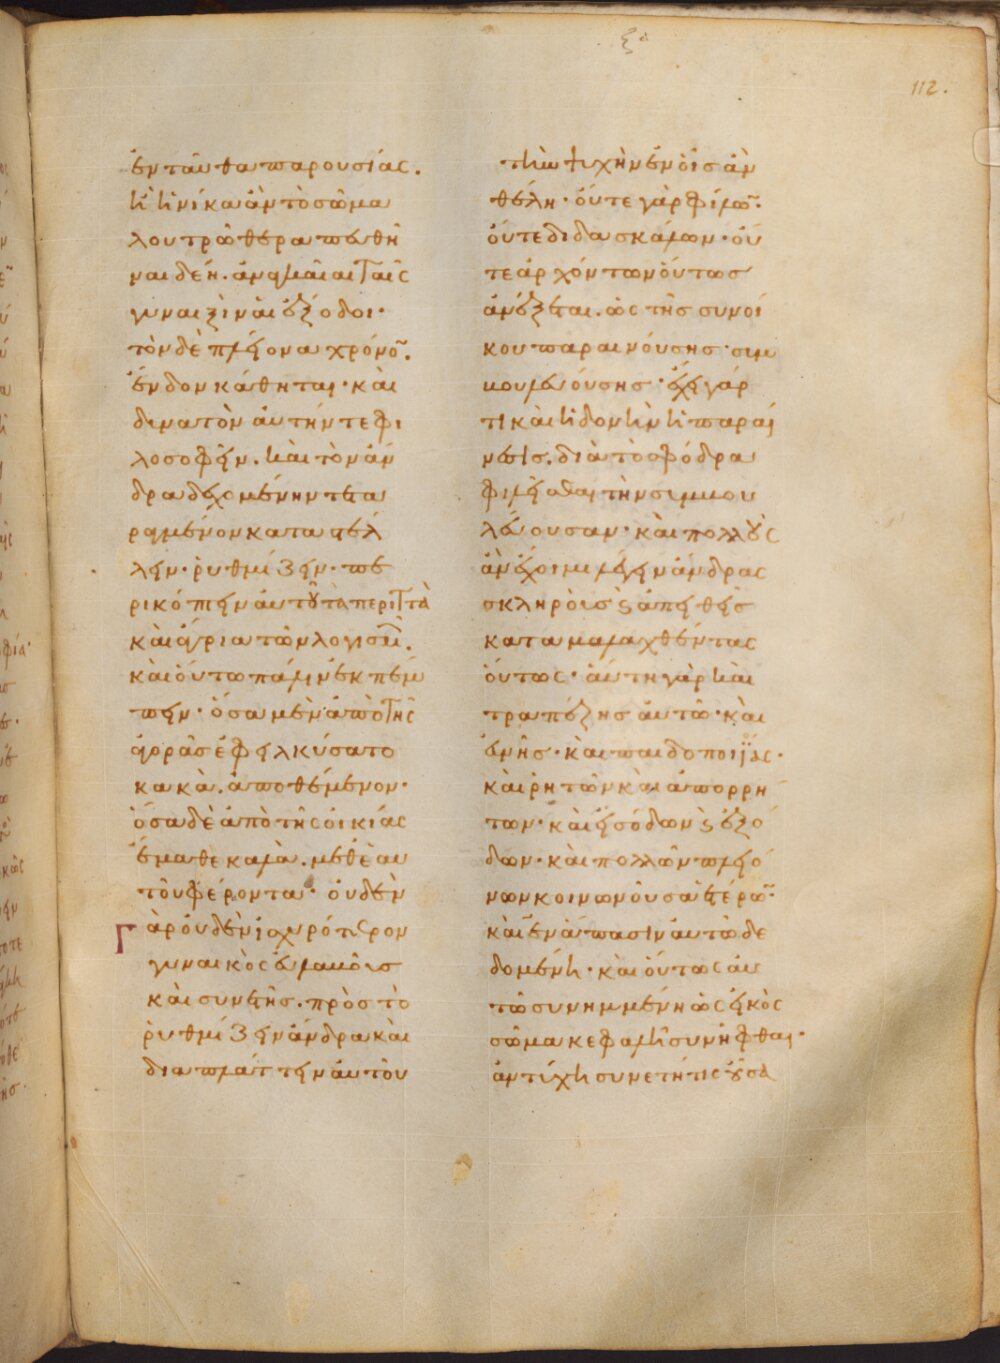 ξα
112.
ἐνταῦθα παρουσίας.
ἢ ἡνίκα ἂν τὸ σῶμα
λουτρῶ θεραπευθῆ
ναι δέη. ἀναγκαῖαι ταῖς
γυναιξὶν αἱ ἔξοδοι·
τὸν δὲ πλείονα χρόνον.
ἔνδον κάθηται· καὶ
δυνατὸν αὐτήν τε φι
λοσοφεῖν. καὶ τὸν ἄν
δρα δεχομένην τετα
ραγμένον καταστέλ
λειν· ῥυθμίζειν· πε
ρικόπτειν αὐτοῦ τὰ περιττὰ
καὶ ἄγρια τῶν λογισμῶν.
καὶ οὕτω πάλιν ἐκπέμ
πειν· ὅσα μὲν ἀπὸ τῆς
ἀγορᾶς ἐφελκύσατο
κακὰ. ἀποθέμενον·
ὅσα δὲ ἀπὸ τῆς οἰκίας
ἔμαθε καλὰ. μεθ' ἑαυ
τοῦ φέροντα· οὐδὲν
Γὰρ οὐδὲν ἰσχυρότερον
γυναικὸς εὐλαβοῦς
καὶ συνετῆς. πρὸς τὸ
ῥυθμίζειν ἄνδρα καὶ
διαπλάττειν αὐτοῦ
τὴν ψυχὴν ἐν οἷς ἂν
θέλη· οὔτε γὰρ φίλων.
οὔτε διδασκάλων· οὔ
τε ἀρχόντων οὕτως
ἀνέξεται. ὡς τῆς συνοί
κου παραινούσης· συμ
βουλευούσης· ἔχει γάρ
τι καὶ ἡδονὴν ἡ παραί
νεσις. διὰ τὸ σφόδρα
φιλεῖσθαι τὴν συμβου
λεύουσαν· καὶ πολλοὺς
ἂν ἔχοιμι λέγειν ἄνδρας
σκληροὺς καὶ ἀπειθεῖς
καταμαλαχθέντας
οὕτως· αὕτη γὰρ καὶ
τραπέζης αὐτῶ· καὶ
εὐνῆς· καὶ παιδοποιΐας·
καὶ ῥητῶν καὶ ἀπορρή
των· καὶ εἰσόδων καὶ ἐξό
δων· καὶ πολλῶν πλειό
νων κοινωνοῦσα ἑτέρων·
καὶ ἐν ἅπασιν αὐτῶ δε
δομένη· καὶ οὕτως αὐ
τῶ συνημμένη ὡς εἰκὸς
σῶμα κεφαλῆ συνῆφθαι·
ἂν τύχη συνετή τις οὖσα